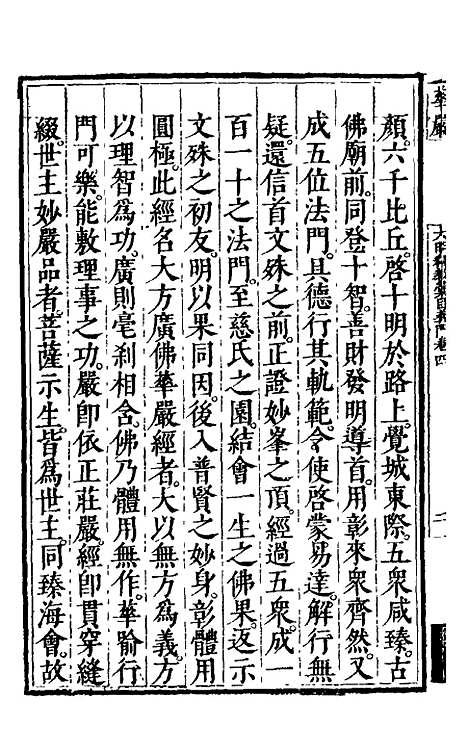 顏。六千比丘。啓十明於路上。覺城東際。五衆咸臻。古
佛廟前。同登十智。善財發明導首。用彰來衆齊然。又
成五位法門。具德行其軌範。令使啓蒙易達。解行無
疑。還信首文殊之前。正證妙峯之頂。經過五衆。成一
百一十之法門。至慈氏之園。結會一生之佛果。返示
文殊之初友。明以果同因。後入普賢之妙身。彰體用
圓極。此經名大方廣佛華嚴經者。大以無方爲義。方
以理智爲功。廣則毫剎相含。佛乃體用無作。華喻行
門可樂。能敷理事之功。嚴卽依正莊嚴。經卽貫穿縫
綴。世主妙嚴品者。菩薩示生。皆爲世主。同臻海會。故
華嚴
卷四